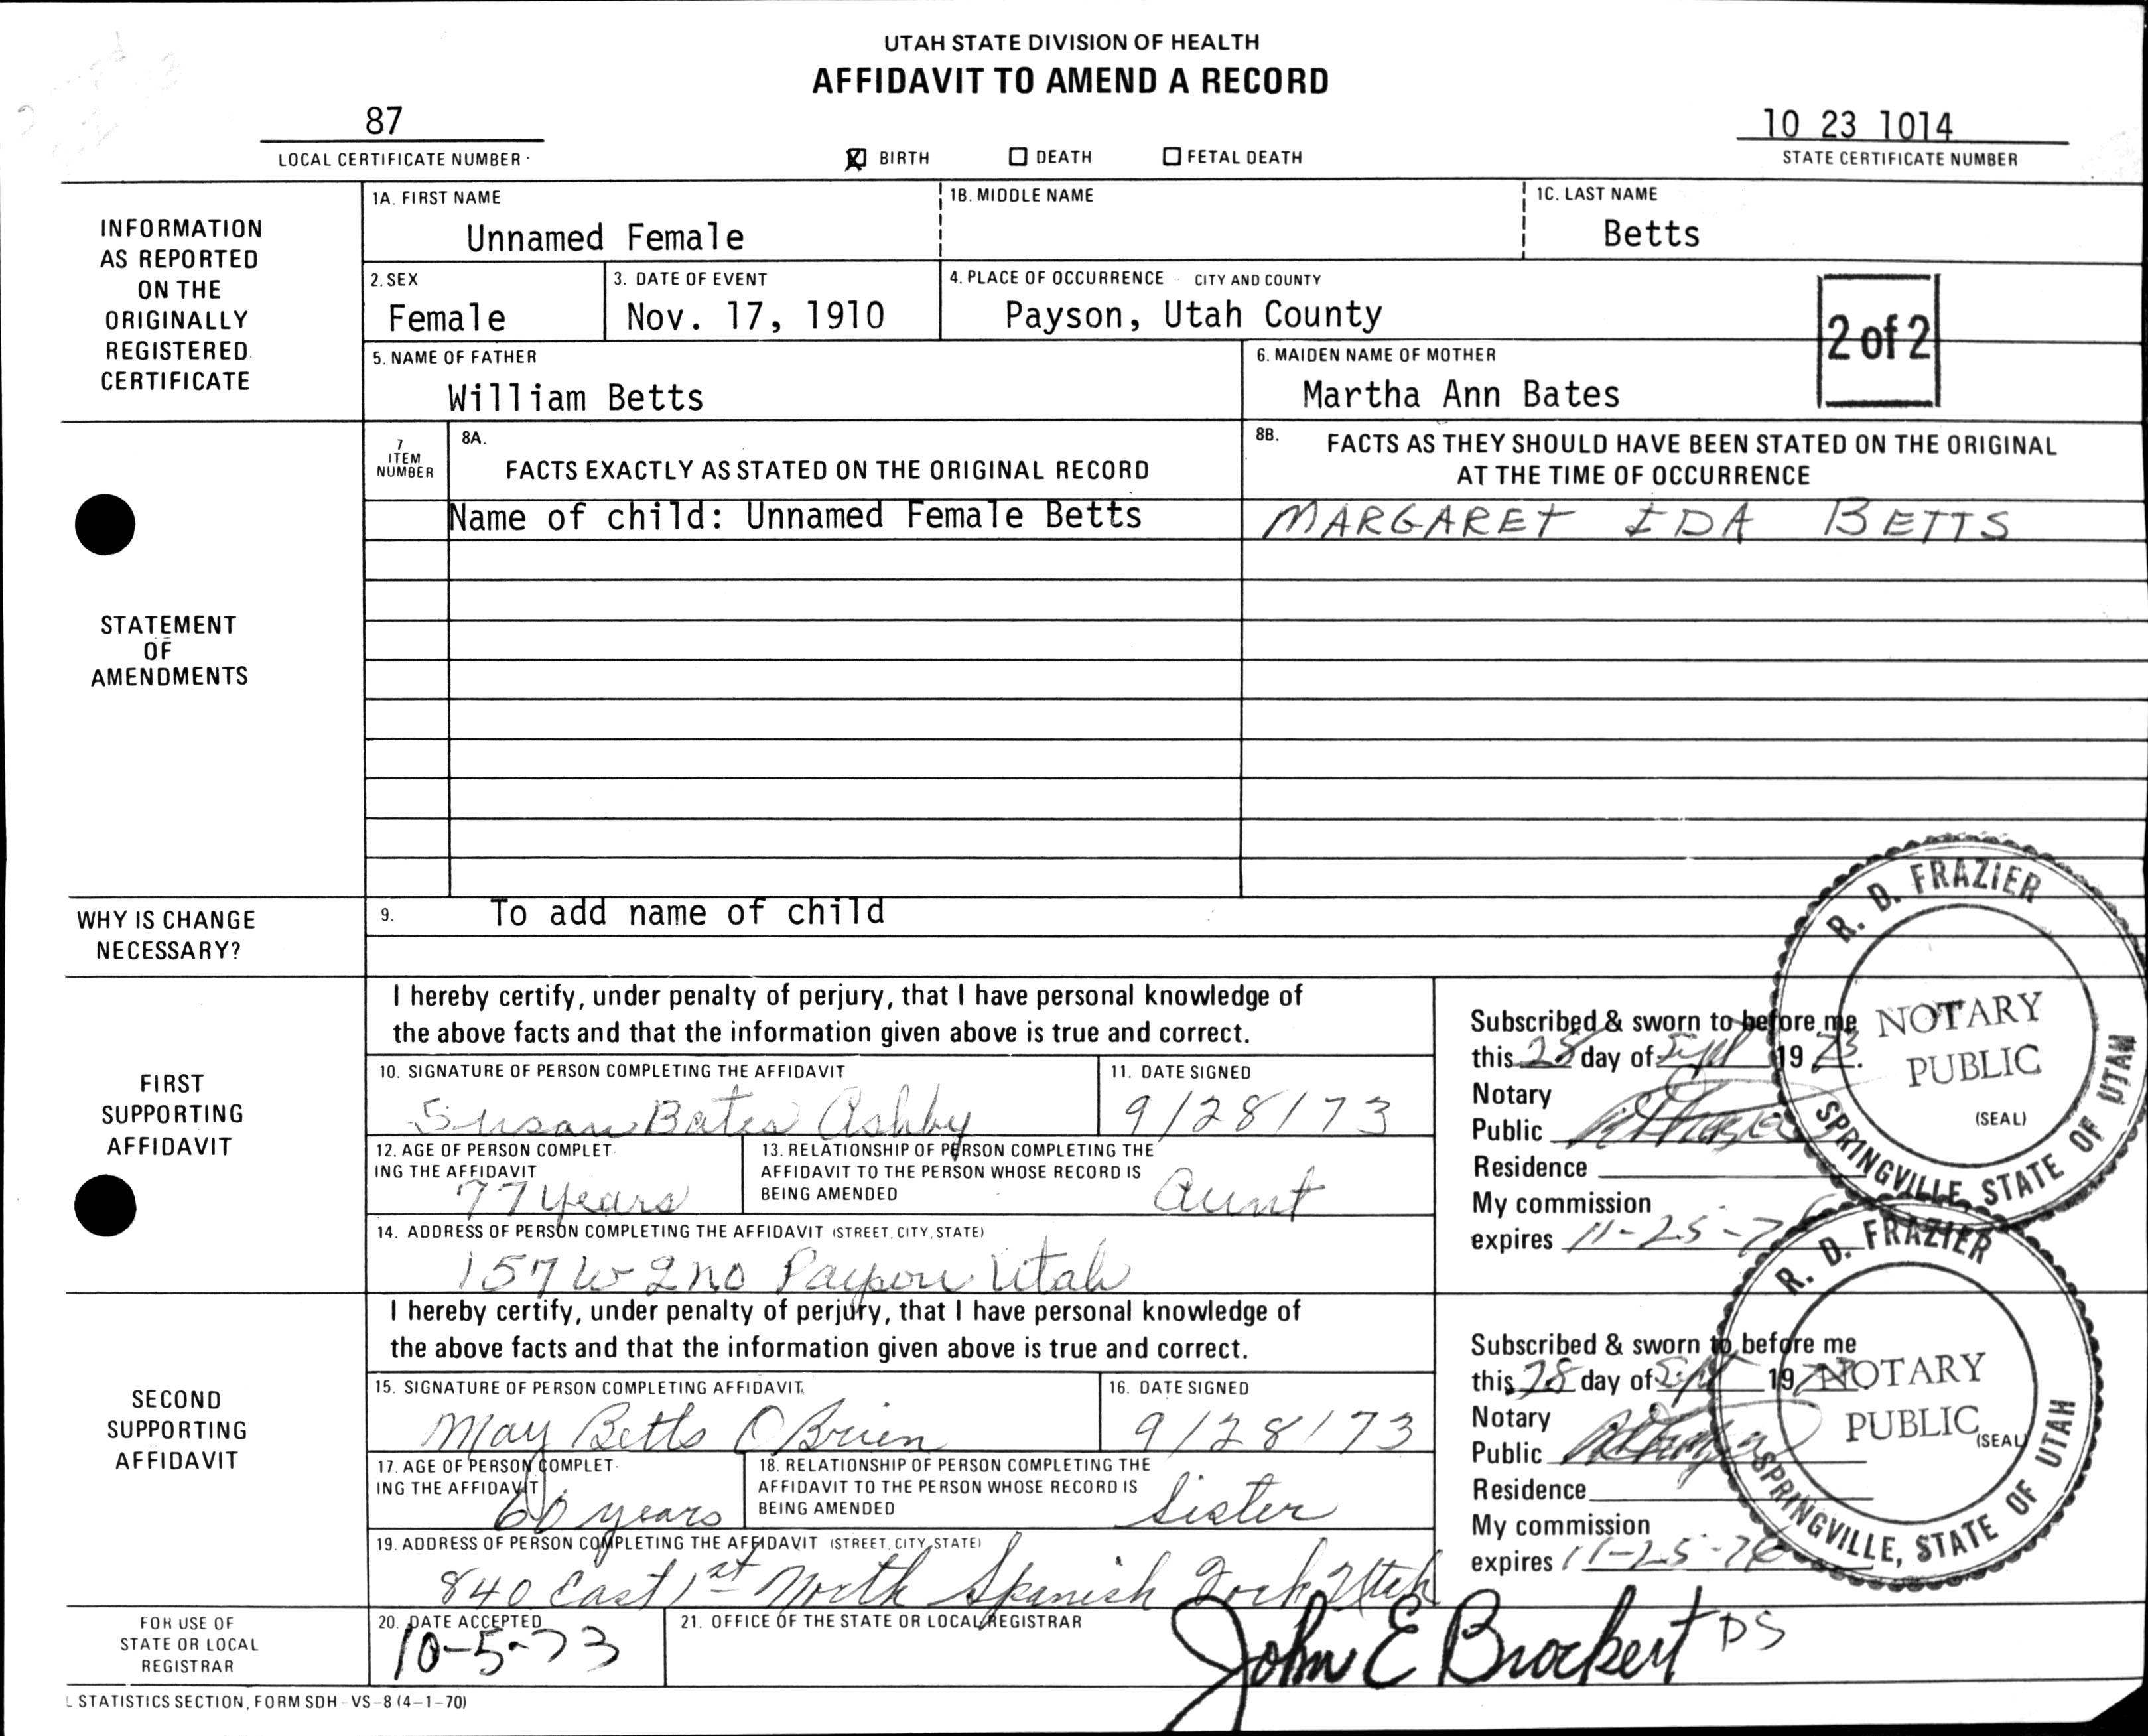 UTAH STATE DIVISION OF HEALTH
AFFIDAVIT TO AMEND A RECORD
87
LOCAL CERTIFICATE NUMBER
☒ BIRTH ☐ DEATH ☐ FETAL DEATH
10 23 1014
STATE CERTIFICATE NUMBER
INFORMATION
AS REPORTED
ON THE
ORIGINALLY
REGISTERED
CERTIFICATE
1A. FIRST NAME
Unnamed Female
1B. MIDDLE NAME
1C. LAST NAME
Betts
2. SEX
Female
3. DATE OF EVENT
Nov. 17, 1910
4. PLACE OF OCCURRENCE CITY AND COUNTY
Payson, Utah County
2 of 2
5. NAME OF FATHER
William Betts
6. MAIDEN NAME OF MOTHER
Martha Ann Bates
STATEMENT
OF
AMENDMENTS
7
ITEM
NUMBER
8A.
FACTS EXACTLY AS STATED ON THE ORIGINAL RECORD
8B. FACTS AS THEY SHOULD HAVE BEEN STATED ON THE ORIGINAL
AT THE TIME OF OCCURRENCE
Name of child: Unnamed Female Betts
MARGARET IDA BETTS
WHY IS CHANGE
NECESSARY?
9. To add name of child
FIRST
SUPPORTING
AFFIDAVIT
I hereby certify, under penalty of perjury, that I have personal knowledge of
the above facts and that the information given above is true and correct.
10. SIGNATURE OF PERSON COMPLETING THE AFFIDAVIT
Susan Bates Ashby
11. DATE SIGNED
9/28/73
12. AGE OF PERSON COMPLET-
ING THE AFFIDAVIT
77 years
13. RELATIONSHIP OF PERSON COMPLETING THE
AFFIDAVIT TO THE PERSON WHOSE RECORD IS
BEING AMENDED
Aunt
14. ADDRESS OF PERSON COMPLETING THE AFFIDAVIT (STREET, CITY, STATE)
157 W 2nd Payson Utah
Subscribed & sworn to before me
this 28 day of Sept 1973.
Notary
Public
Residence
My commission
expires 11-25-7
R. D. FRAZIER
NOTARY
PUBLIC
(SEAL)
SPRINGVILLE, STATE OF UTAH
SECOND
SUPPORTING
AFFIDAVIT
I hereby certify, under penalty of perjury, that I have personal knowledge of
the above facts and that the information given above is true and correct.
15. SIGNATURE OF PERSON COMPLETING AFFIDAVIT
May Betts O'Brien
16. DATE SIGNED
9/28/73
17. AGE OF PERSON COMPLET-
ING THE AFFIDAVIT
60 years
18. RELATIONSHIP OF PERSON COMPLETING THE
AFFIDAVIT TO THE PERSON WHOSE RECORD IS
BEING AMENDED
Sister
19. ADDRESS OF PERSON COMPLETING THE AFFIDAVIT (STREET, CITY, STATE)
840 East 1st North Spanish Fork Utah
Subscribed & sworn to before me
this 28 day of Sept 197
Notary
Public
Residence
My commission
expires 11-25-76
R. D. FRAZIER
NOTARY
PUBLIC
(SEAL)
SPRINGVILLE, STATE OF UTAH
FOR USE OF
STATE OR LOCAL
REGISTRAR
20. DATE ACCEPTED
10-5-73
21. OFFICE OF THE STATE OR LOCAL REGISTRAR
John E Brockert DS
L STATISTICS SECTION, FORM SDH-VS-8 (4-1-70)